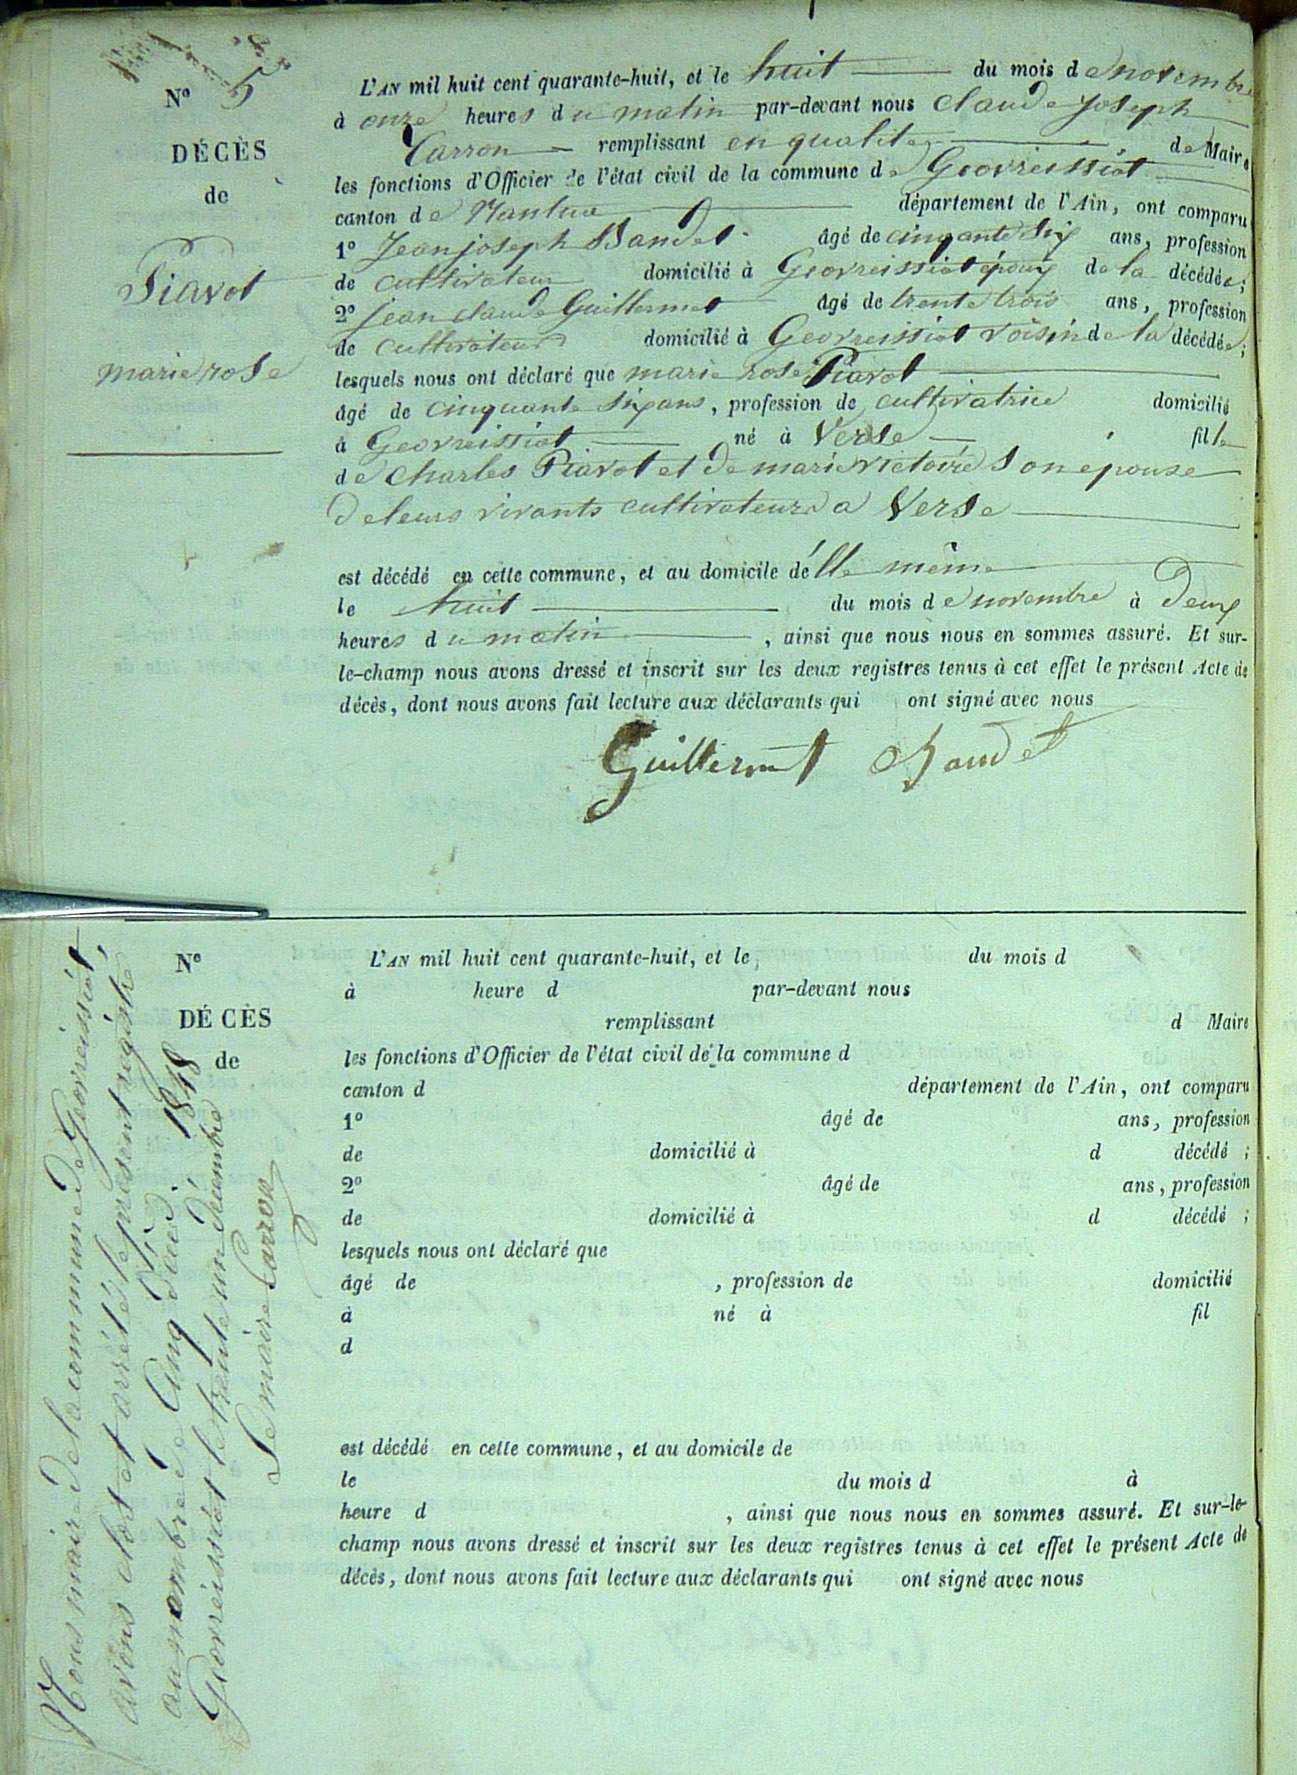 N° 5
DÉCÈS
de
Piavot
marie rose
L'AN mil huit cent quarante-huit, et le huit du mois de novembre
à onze heures du matin par-devant nous claude joseph
Carron remplissant en qualité de Maire
les fonctions d'Officier de l'état civil de la commune de Géovreissiat
canton de Nantua département de l'Ain, ont comparu
1° Jean joseph Baudet âgé de cinquante six ans, profession
de cultivateur domicilié à Géovreissiat époux de la décédée;
2° jean claude Guillermet âgé de trente trois ans, profession
de cultivateur domicilié à Géovreissiat voisin de la décédée;
lesquels nous ont déclaré que marie rose Piavot
âgé de cinquante six ans, profession de cultivatrice domicilié
à Géovreissiat né à Verse fille
de Charles Piavot et de marie victoire son épouse
de leurs vivants cultivateurs a Verse
est décédé en cette commune, et au domicile d'elle même
le huit du mois de novembre à deux
heures du matin, ainsi que nous nous en sommes assuré. Et sur-
le-champ nous avons dressé et inscrit sur les deux registres tenus à cet effet le présent Acte de
décès, dont nous avons fait lecture aux déclarants qui ont signé avec nous
Guillermet Baudet
N°
DÉCÈS
de
L'AN mil huit cent quarante-huit, et le du mois d
à heure d par-devant nous
remplissant d Maire
les fonctions d'Officier de l'état civil de la commune d
canton d département de l'Ain, ont comparu
1° âgé de ans, profession
de domicilié à d décédé ;
2° âgé de ans, profession
de domicilié à d décédé ;
lesquels nous ont déclaré que
âgé de , profession de domicilié
à né à fil
d
est décédé en cette commune, et au domicile de
le du mois d à
heure d , ainsi que nous nous en sommes assuré. Et sur-le-
champ nous avons dressé et inscrit sur les deux registres tenus à cet effet le présent Acte de
décès, dont nous avons fait lecture aux déclarants qui ont signé avec nous
Nous maire de la commune de Géovreissiat,
avons clos et arrêté le présent registre
au nombre de Cinq décés.
Géovreissiat le trente un décembre 1848
Le maire Carron